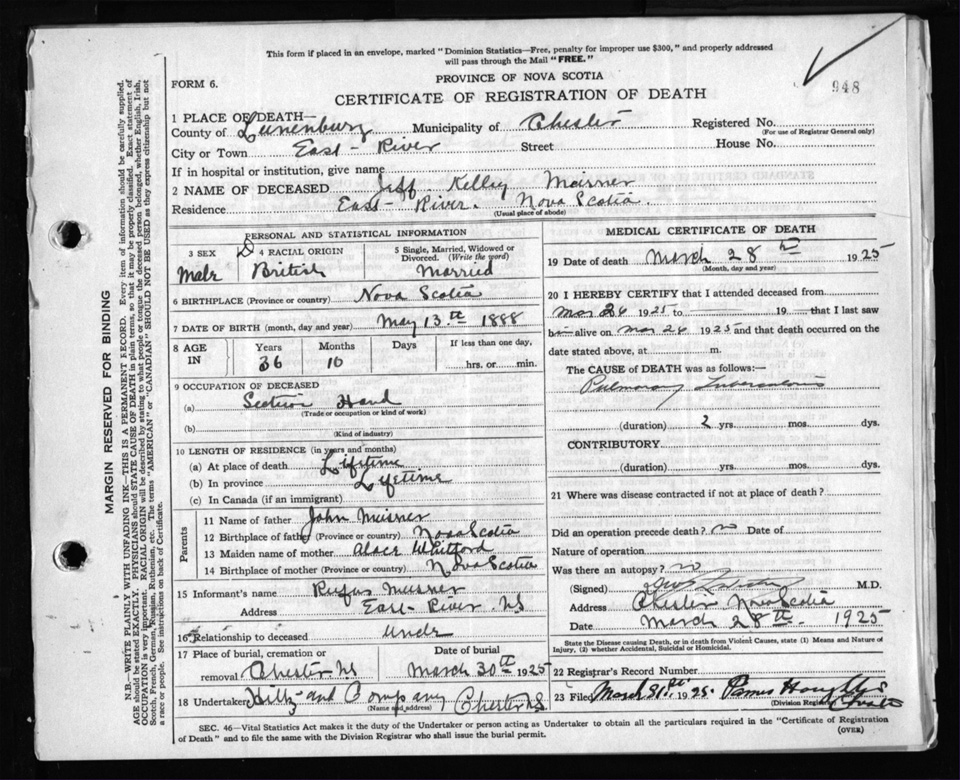 This form if placed in an envelope, marked "Dominion Statistics—Free, penalty for improper use $300," and properly addressed
will pass through the Mail "FREE."
PROVINCE OF NOVA SCOTIA
FORM 6.
948
CERTIFICATE OF REGISTRATION OF DEATH
1 PLACE OF DEATH—
County of Lunenburg Municipality of Chester Registered No.
(For use of Registrar General only)
City or Town East River Street House No.
If in hospital or institution, give name
2 NAME OF DECEASED Jeff Kelley Meisner
Residence East River. Nova Scotia.
(Usual place of abode)
PERSONAL AND STATISTICAL INFORMATION
3 SEX 4 RACIAL ORIGIN 5 Single, Married, Widowed or
Divorced. (Write the word)
Male British Married
6 BIRTHPLACE (Province or country) Nova Scotia
7 DATE OF BIRTH (month, day and year) May 13th 1888
8 AGE IN Years Months Days If less than one day,
36 10 hrs. or min.
9 OCCUPATION OF DECEASED
(a) Section Hand
(Trade or occupation or kind of work)
(b)
(Kind of industry)
10 LENGTH OF RESIDENCE (in years and months)
(a) At place of death Lifetime
(b) In province Lifetime
(c) In Canada (if an immigrant)
Parents
11 Name of father John Meisner
12 Birthplace of father (Province or country) Nova Scotia
13 Maiden name of mother Whitford
14 Birthplace of mother (Province or country) Nova Scotia
15 Informant's name Rufus Meisner
Address East River NS
16 Relationship to deceased Uncle
17 Place of burial, cremation or Date of burial
removal Chester NS March 30th 1925
18 Undertaker Hiltz and Company Chester NS
(Name and address)
MEDICAL CERTIFICATE OF DEATH
19 Date of death March 28th 1925
(Month, day and year)
20 I HEREBY CERTIFY that I attended deceased from
Mar 26 1925 to 19 that I last saw
him alive on Mar 26 1925 and that death occurred on the
date stated above, at m.
The CAUSE of DEATH was as follows:—
Pulmonary Tuberculosis
(duration) 2 yrs. mos. dys.
CONTRIBUTORY
(duration) yrs. mos. dys.
21 Where was disease contracted if not at place of death?
Did an operation precede death? no Date of
Nature of operation
Was there an autopsy? no
(Signed) M.D.
Address Chester Nova Scotia
Date March 28th 1925
State the Disease causing Death, or in death from Violent Causes, state (1) Means and Nature of
Injury, (2) whether Accidental, Suicidal or Homicidal.
22 Registrar's Record Number
23 Filed March 31st 1925.
(Division Registrar)
SEC. 46—Vital Statistics Act makes it the duty of the Undertaker or person acting as Undertaker to obtain all the particulars required in the "Certificate of Registration
of Death" and to file the same with the Division Registrar who shall issue the burial permit.
(OVER)
MARGIN RESERVED FOR BINDING
N.B.—WRITE PLAINLY WITH UNFADING INK—THIS IS A PERMANENT RECORD. Every item of information should be carefully supplied.
AGE should be stated EXACTLY. PHYSICIANS should STATE CAUSE OF DEATH in plain terms, so that it may be properly classified. Exact statement of
OCCUPATION is very important. RACIAL ORIGIN will be described by stating to what people or tongue the deceased person belonged, whether English, Irish,
Scotch, French, German, Russian, Ruthenian, etc. The terms "AMERICAN" or "CANADIAN" SHOULD NOT BE USED as they express citizenship but not
a race or people. See instructions on back of Certificate.